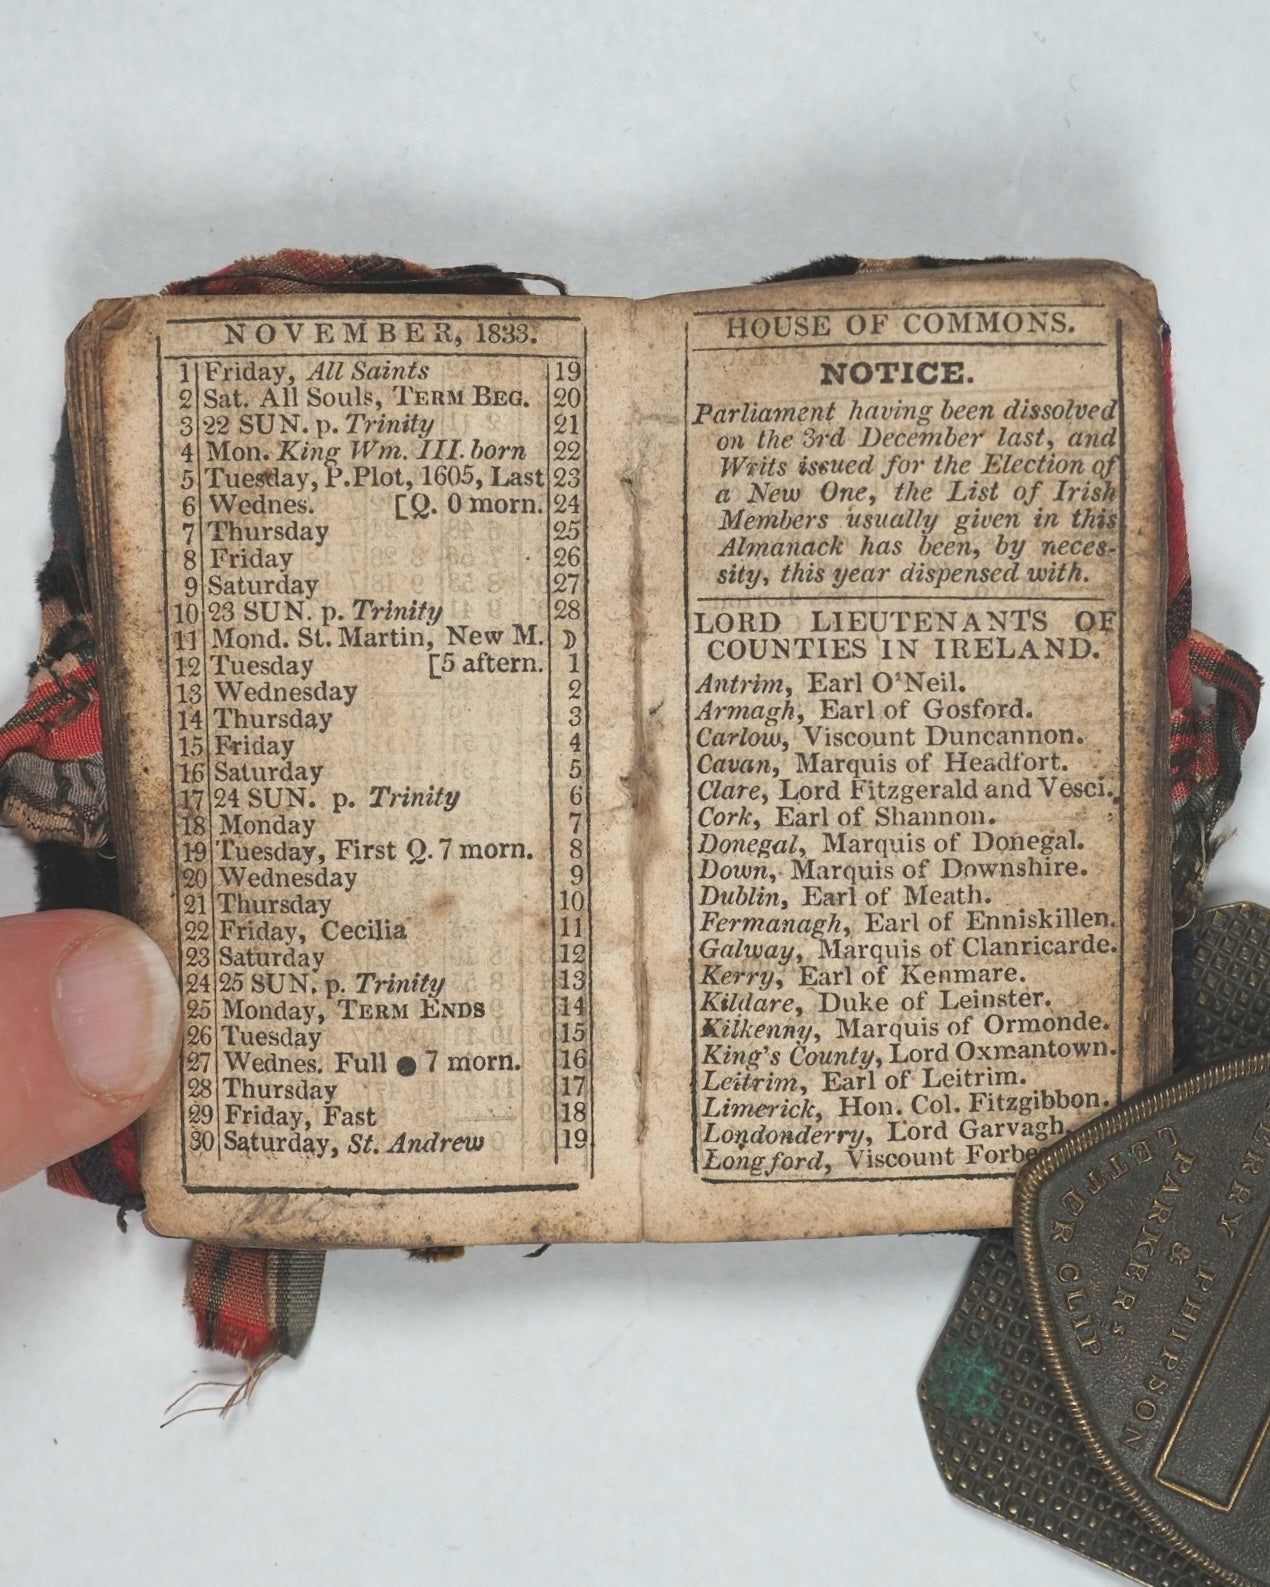 NOVEMBER, 1833.
1 Friday, All Saints 19
2 Sat. All Souls, TERM BEG. 20
3 22 SUN. p. Trinity 21
4 Mon. King Wm. III. born 22
5 Tuesday, P.Plot, 1605, Last 23
6 Wednes. [Q. 0 morn. 24
7 Thursday 25
8 Friday 26
9 Saturday 27
10 23 SUN. p. Trinity 28
11 Mond. St. Martin, New M. D
12 Tuesday [5 aftern. 1
13 Wednesday 2
14 Thursday 3
15 Friday 4
16 Saturday 5
17 24 SUN. p. Trinity 6
18 Monday 7
19 Tuesday, First Q. 7 morn. 8
20 Wednesday 9
21 Thursday 10
22 Friday, Cecilia 11
23 Saturday 12
24 25 SUN. p. Trinity 13
25 Monday, TERM ENDS 14
26 Tuesday 15
27 Wednes. Full ● 7 morn. 16
28 Thursday 17
29 Friday, Fast 18
30 Saturday, St. Andrew 19
HOUSE OF COMMONS.
NOTICE.
Parliament having been dissolved
on the 3rd December last, and
Writs issued for the Election of
a New One, the List of Irish
Members usually given in this
Almanack has been, by neces-
sity, this year dispensed with.
LORD LIEUTENANTS OF
COUNTIES IN IRELAND.
Antrim, Earl O'Neil.
Armagh, Earl of Gosford.
Carlow, Viscount Duncannon.
Cavan, Marquis of Headfort.
Clare, Lord Fitzgerald and Vesci.
Cork, Earl of Shannon.
Donegal, Marquis of Donegal.
Down, Marquis of Downshire.
Dublin, Earl of Meath.
Fermanagh, Earl of Enniskillen.
Galway, Marquis of Clanricarde.
Kerry, Earl of Kenmare.
Kildare, Duke of Leinster.
Kilkenny, Marquis of Ormonde.
King's County, Lord Oxmantown.
Leitrim, Earl of Leitrim.
Limerick, Hon. Col. Fitzgibbon.
Londonderry, Lord Garvagh.
Longford, Viscount Forbe
RRY PHIPSON
& PARKERs
LETTER CLIP